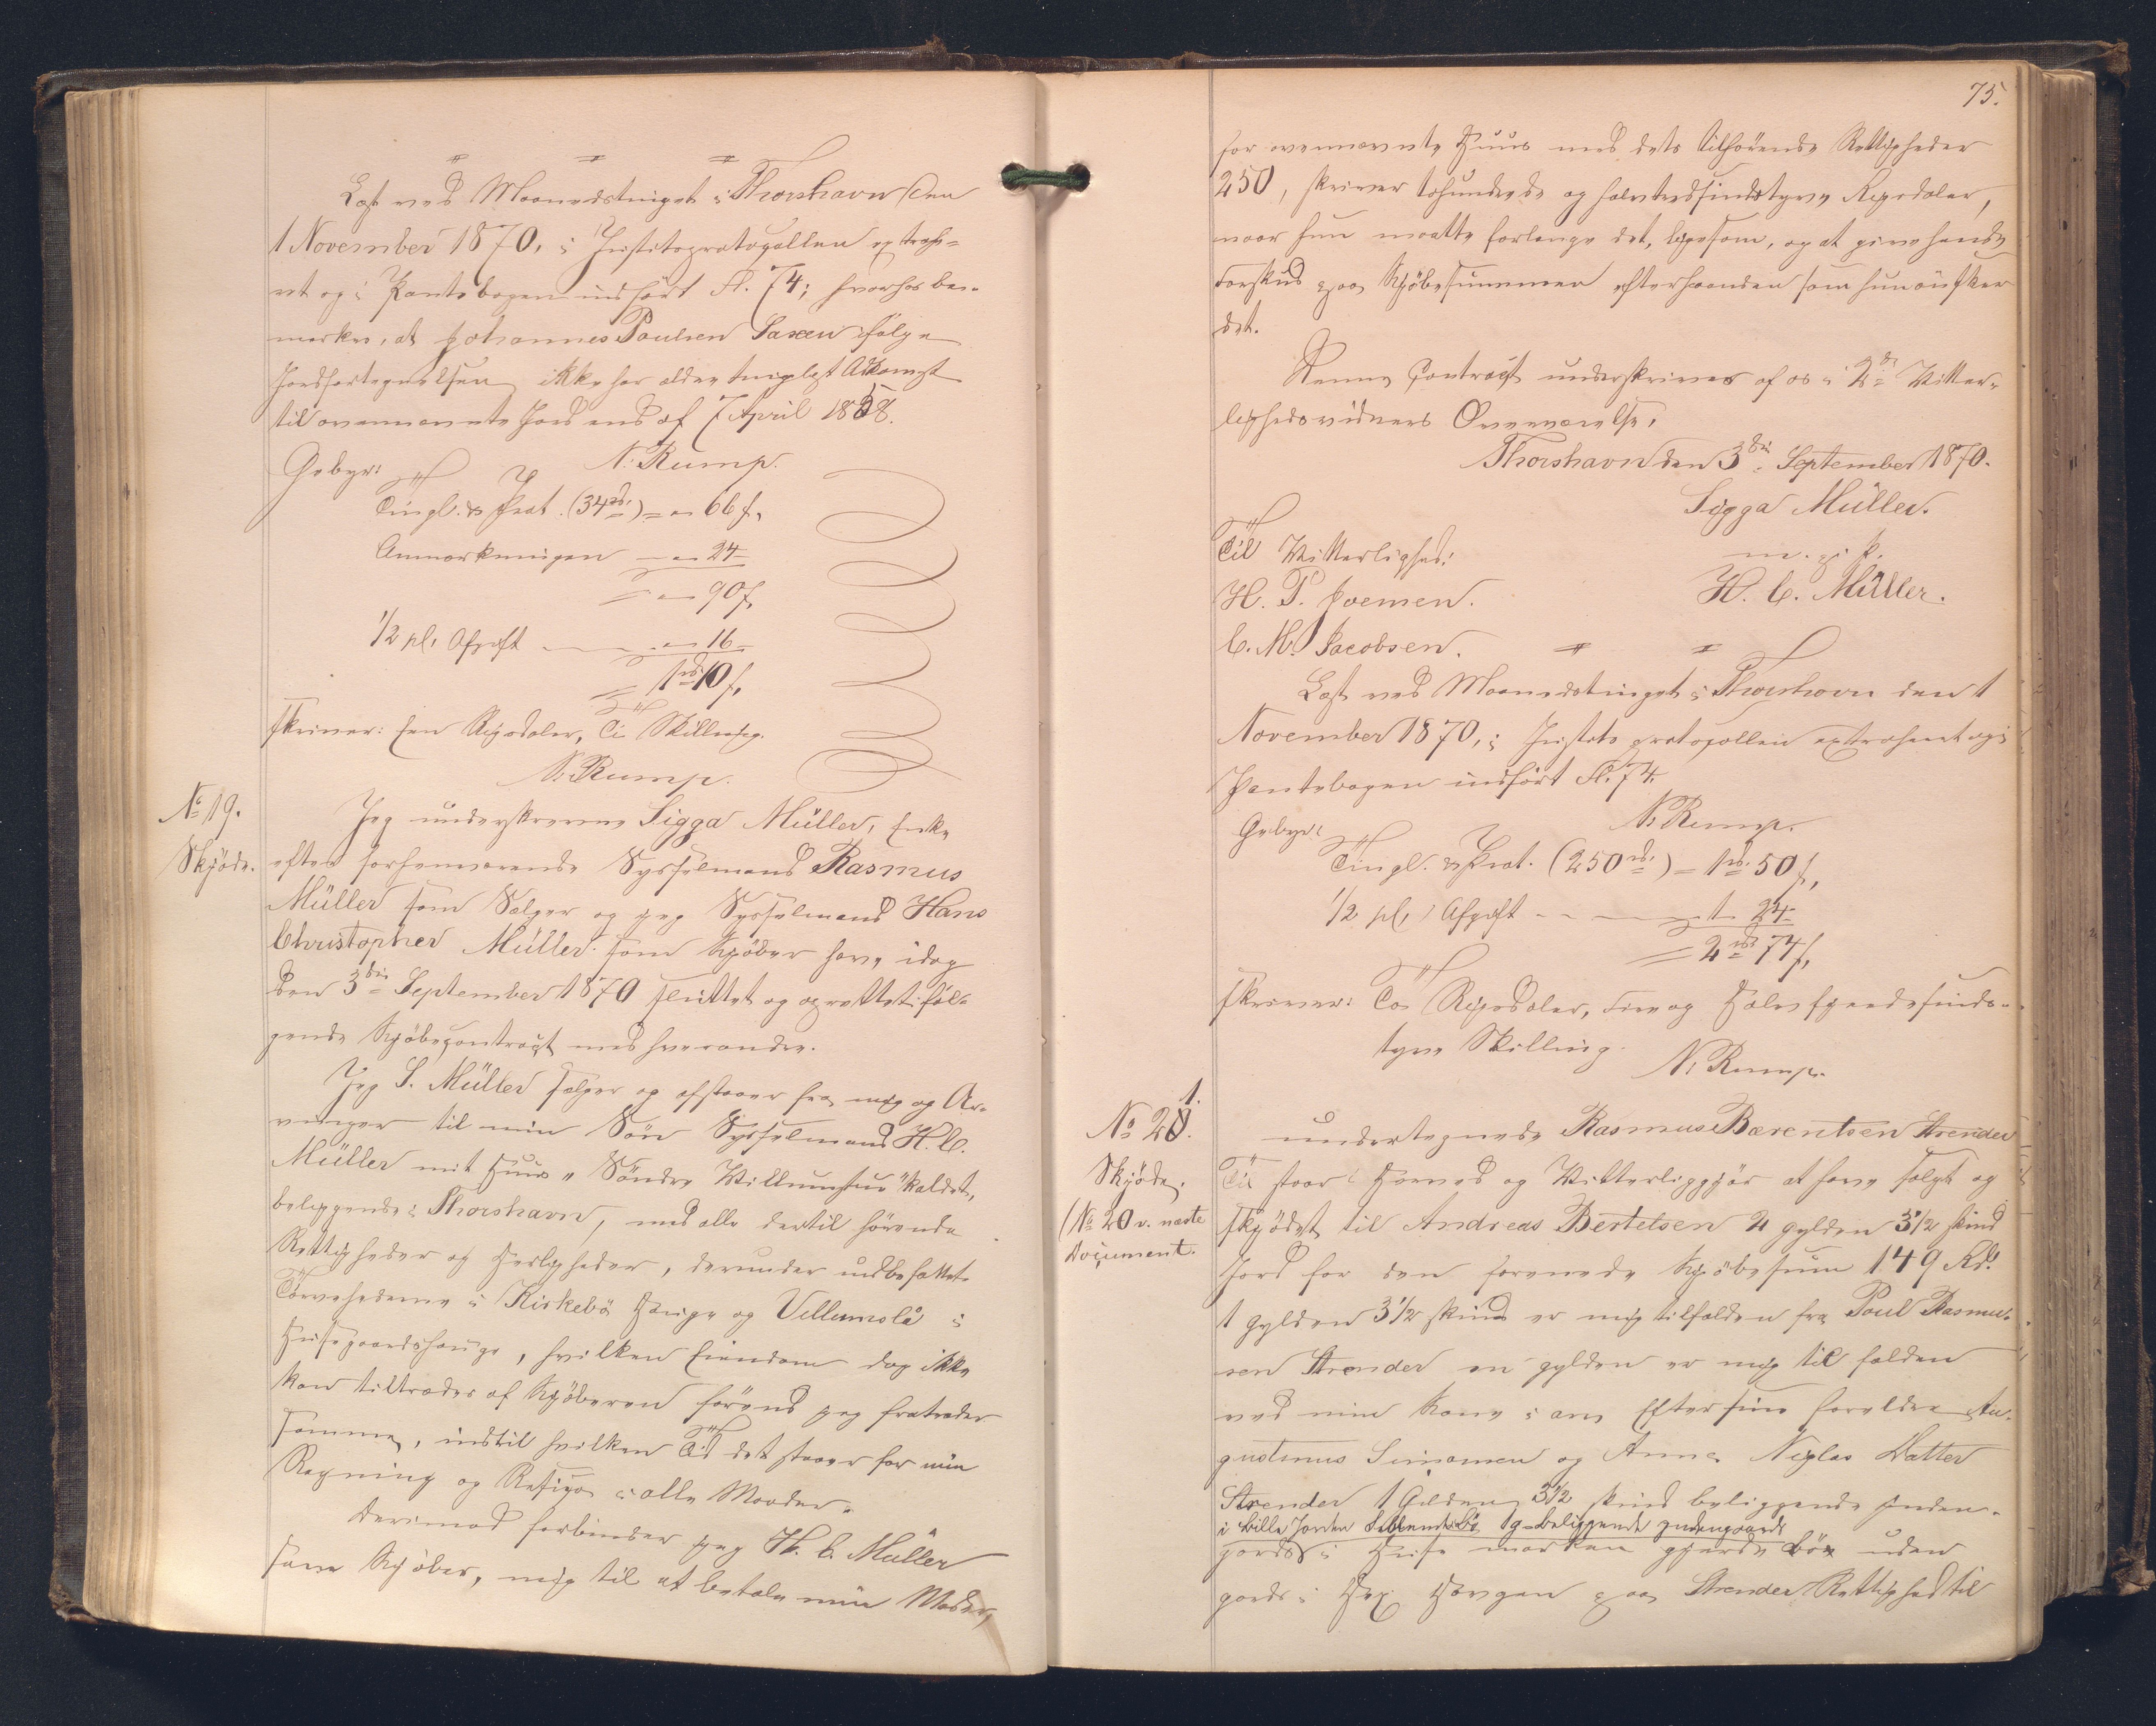 Læst ved Maanedstinget i Thorshavn den
1 November 1870, i Justitsprotocollen extrahe-
ret og i Pantebogen indført fl. 74; hvorhos be-
mærkes, at Johannes Poulsen Saxen ifølge
Jordfortegnelsen ikke har ældre tinglæst Adkomst
til ovennævnte Jord end af 7 April 1858.
N. Rump.
Gebyr:
Tingl. & Prot. (34 rd.) = " 66 s,
Anmærkningen — " 24
= " 90 s,
1/2 pCt. Afgift — " 16
= 1 rd. 10 s,
skriver: Een Rigsdaler, Ti Skilling.
N. Rump.
No. 19.
Skjøde.
Jeg underskrevne Sigga Müller, Enke
efter forhenværende Sysselmand Rasmus
Müller som Sælger og jeg Sysselmand Hans
Christopher Müller som Kjøber have idag
den 3die September 1870 sluttet og oprettet føl-
gende Kjøbecontract med hverandre.
Jeg S. Müller sælger og afstaaer fra mig og Ar-
vinger til min Søn Sysselmand H. C.
Müller mit Huus "Søndre Willumstue" kaldet,
beliggende i Thorshavn, med alle dertil hørende
Rettigheder og Herligheder, derunder indbefattet
Tørvehederne i Kirkebø Hauge og Villumslå i
Husegaardshauge, hvilken Eiendom dog ikke
kan tiltrædes af Kjøberen førend jeg fratræder
samme, indtil hvilken Tid det staaer for min
Regning og Risico i alle Maader.
Derimod forbinder jeg H. C. Müller
som Kjøber, mig til at betale min Moder,
75.
for ovennævnte Huus med dets tilhørende Rettigheder
250, skriver tohundrede og halvtredsindstyve Rigsdaler,
naar hun maatte forlange det, ligesom, og at give hende
Forskud paa Kjøbesummen efterhaanden som hun ønsker
det.
Denne Contract underskrives af os i 2de Vitter-
lighedsvidners Overværelse,
Thorshavn den 3die September 1870.
Sigga Müller.
m. f. P.
Til Vitterlighed:
H. C. Müller.
H. P. Joensen.
C. M. Jacobsen.
Læst ved Maanedstinget i Thorshavn den 1
November 1870, i Justitsprotocollen extraheret og i
Pantebogen indført fl. 74.
N. Rump.
Gebyr:
Tingl. & Prot. (250 rd.) = 1 rd. 50 s,
1/2 pCt. Afgift — 1 " 24
= 2 rd. 74 s,
skriver: To Rigsdaler, Fire og Halvfjerdesinds-
tyve Skilling.
N. Rump.
No. 21.
Skjøde.
(No. 20 v. næste
Document.
undertegnede Rasmus Bærentsen Strender
Til staar herved og Vitterliggjør at have solgt og
skjødet til Andreas Bertelsen 2 gylden 3 1/2 skind
Jord for den forenede Kjøbesum 149 Rd.
1 gylden 3 1/2 skind er mig tilfalden fra Poul Rasmu-
sen Strender en gylden er mig til falden
ved min Kone i arv Efter sine foreldre Au-
gustinus Simonsen og Anna Niglas Datter
Strender 1 Gylden 3 1/2 skind beliggende Inden-
i Lille Jorden 1 g beliggende indengaards
gards i Husemarken gjerde bøe uden
gards i Haugen paa Strender Rettighed til